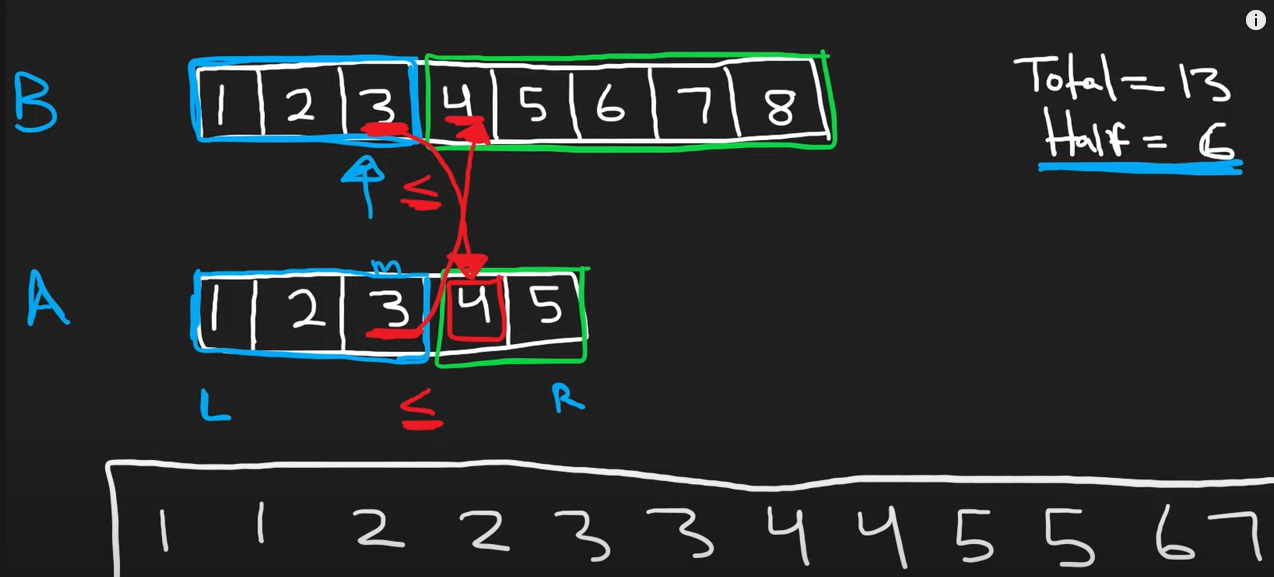 B 1 2 3 4 5 6 7 8
Total = 13
Half = 6
≤
m
A 1 2 3 4 5
L ≤ R
1 1 2 2 3 3 4 4 5 5 6 7
i